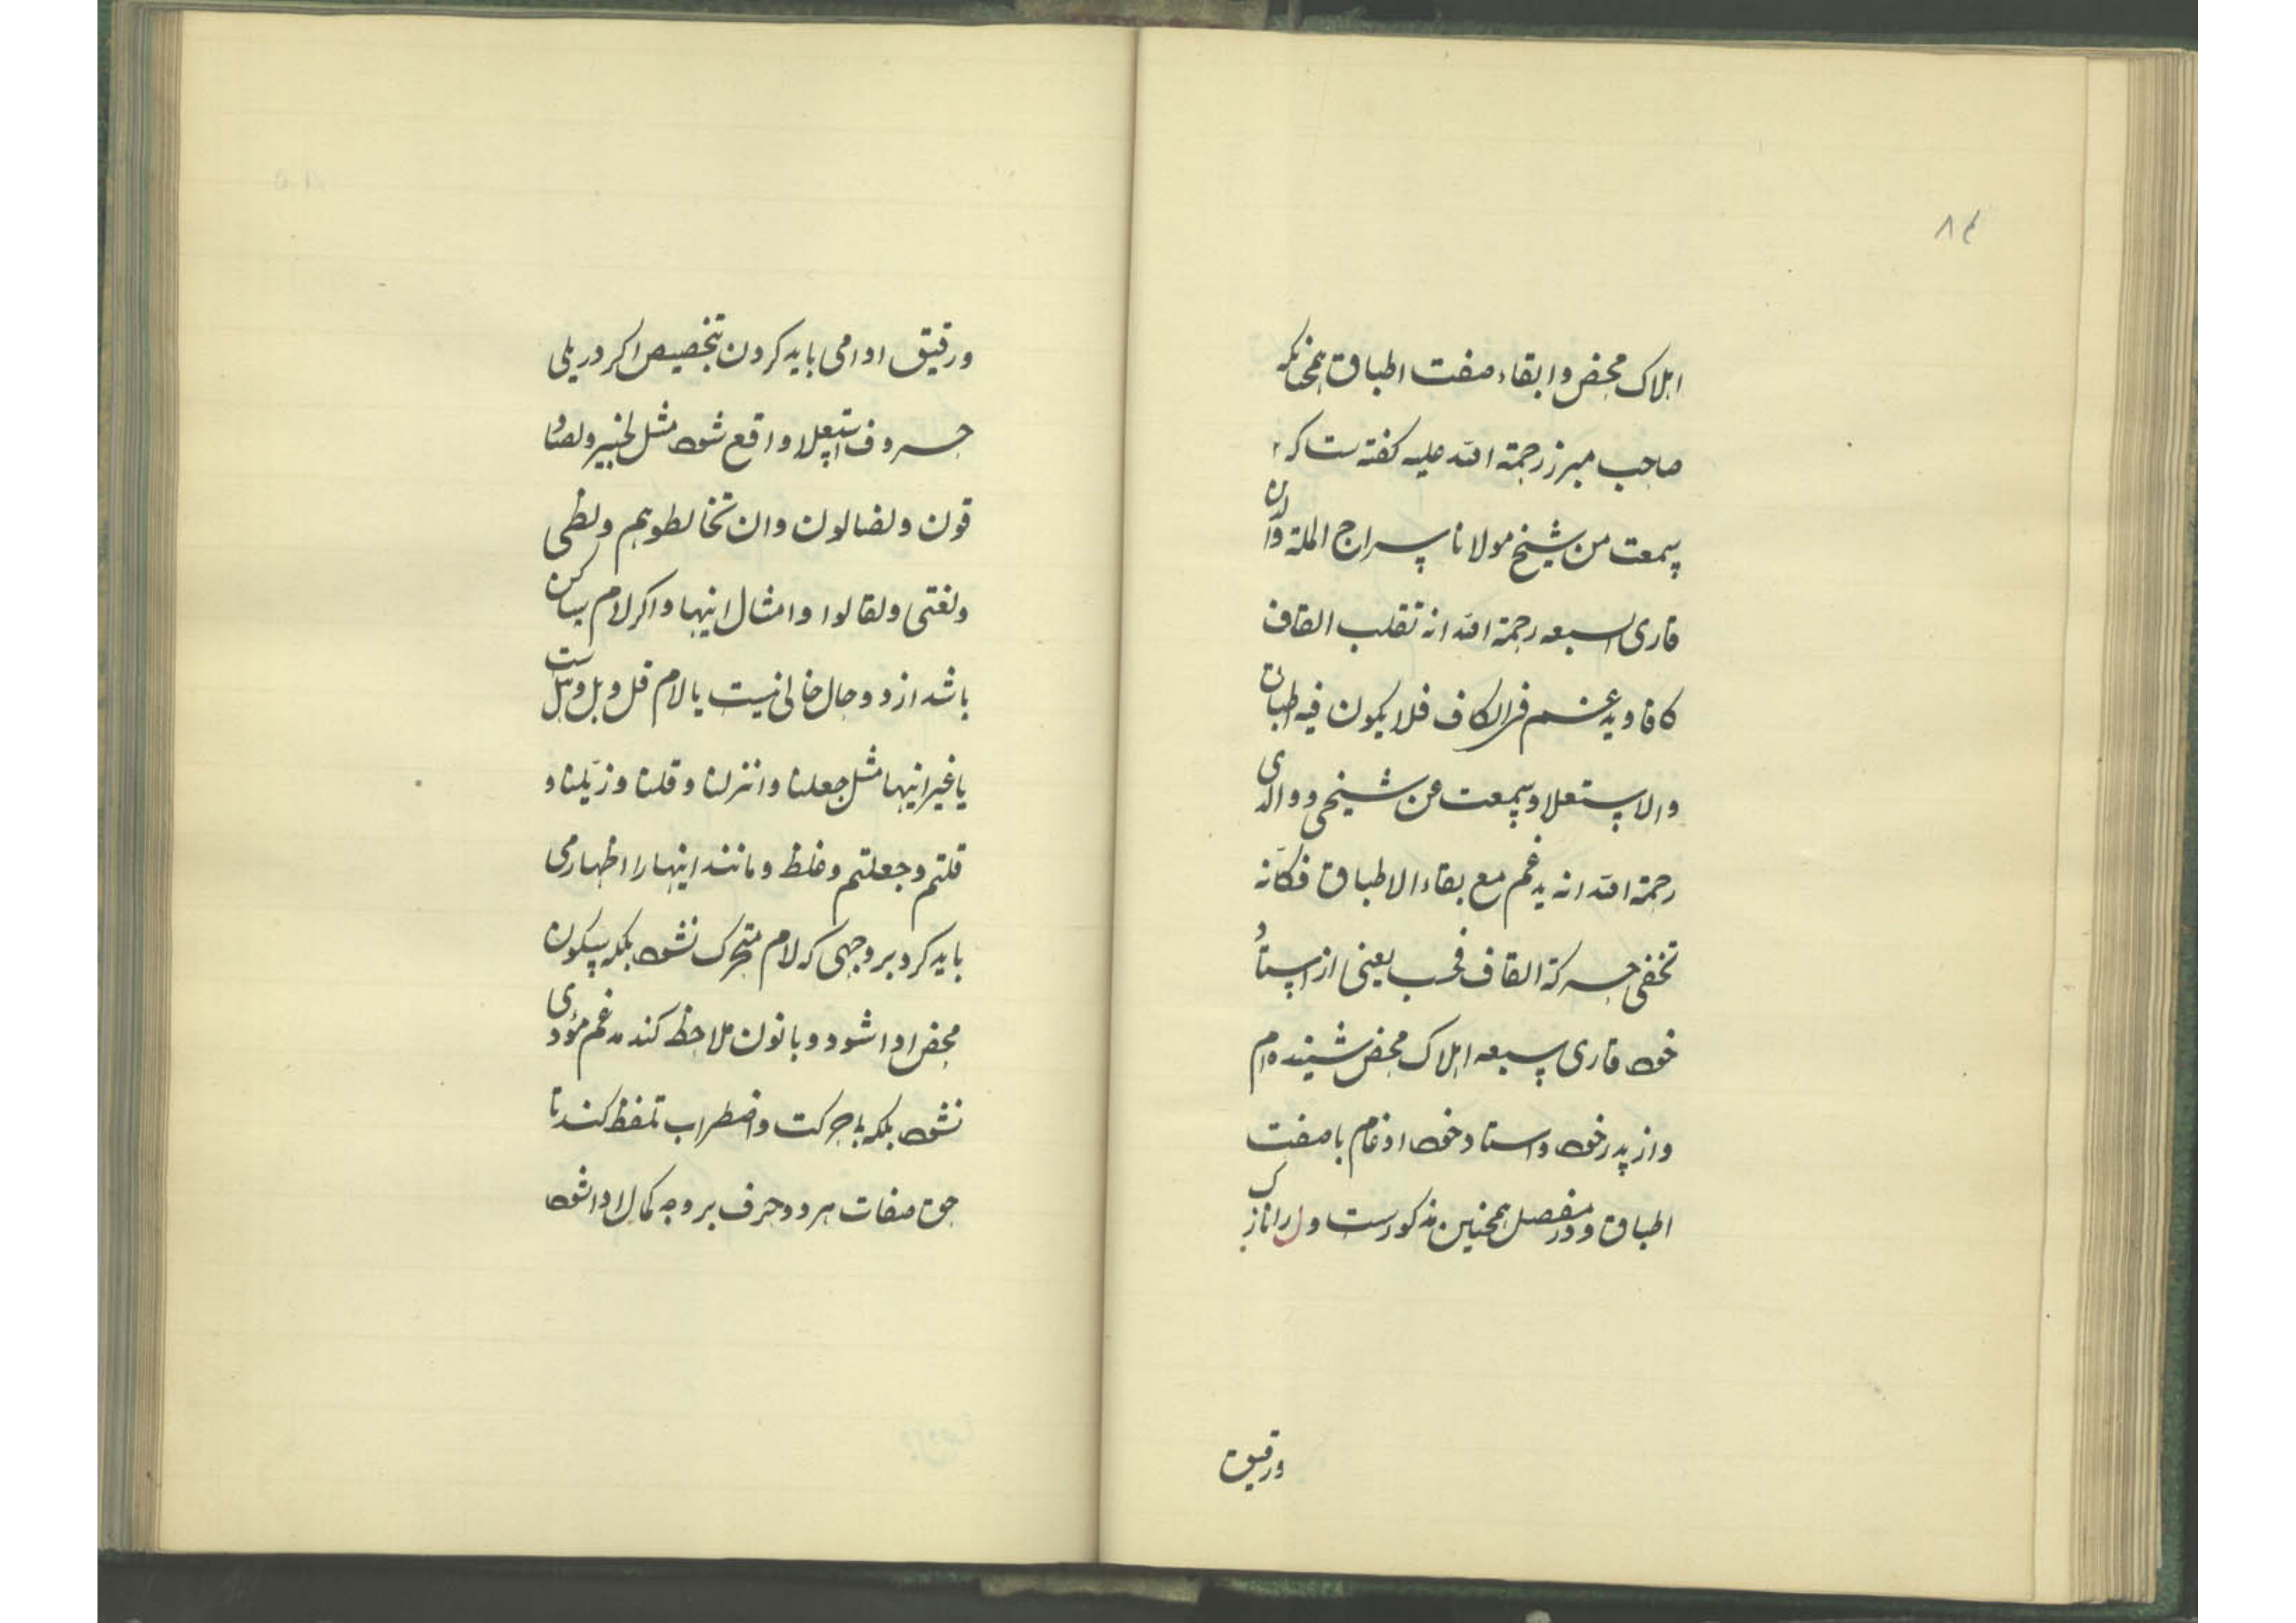 ۸۴
اهلاک محض و ابقاء صفت اطباق همچنانکه
صاحب مبرز رحمة الله علیه کفته ست که
سمعت من شیخ مولانا سراج الملة والدین
قاری السبعه رحمة الله انه تقلب القاف
کافا ویدغم فی الکاف فلا یکون فیه اطباق
والاستعلا وسمعت من شیخی ووالدی
رحمة الله انه یدغم مع بقاء الاطباق فکانه
تخفی حرکة القاف فحسب یعنی از استاد
خود قاری سبعه اهلاک محض شنیده ام
واز پدر خود و استاد خود ادغام با صفت
اطباق و در مفصل همچنین مذکورست و ل را نازک
ورقیق
ورقیق ادا می باید کردن بتخصیص اکر در پلی
حروف استعلا واقع شود مثل لخبیر ولصاد
قون ولضالون وان تخالطوهم ولظی
ولغتی ولقالوا وامثال اینها واکر لام ساکن
باشد از دو حال خالی نیست یا لام قل وبل وهل است
یا غیر اینها مثل جعلنا وانزلنا وقلنا وزیلنا و
قلتم وجعلتم وغلظ ومانند اینها را اظهار می
باید کرد بر وجهی که لام متحرک نشود بلکه بسکون
محض ادا شود و با نون ملاحظ کند مدغم مؤدی
نشود بلکه بی حرکت واضطراب تلفظ کند تا
حق صفات هر دو حرف بر وجه کمال ادا شود